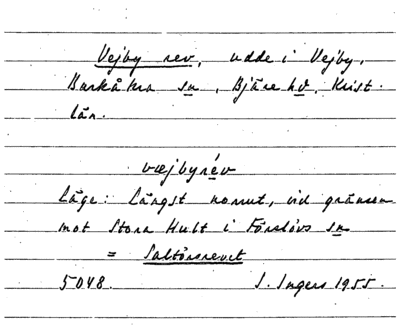 Vejby rev, udde i Vejby,
Barkåkra sn, Bjäre hd, Krist.
län.
væjbyrév
Läge: Längst norrut, vid gränsen
mot Stora Hult i Förslövs sn
= Saltörsrevet
5048. I. Ingers 1955.